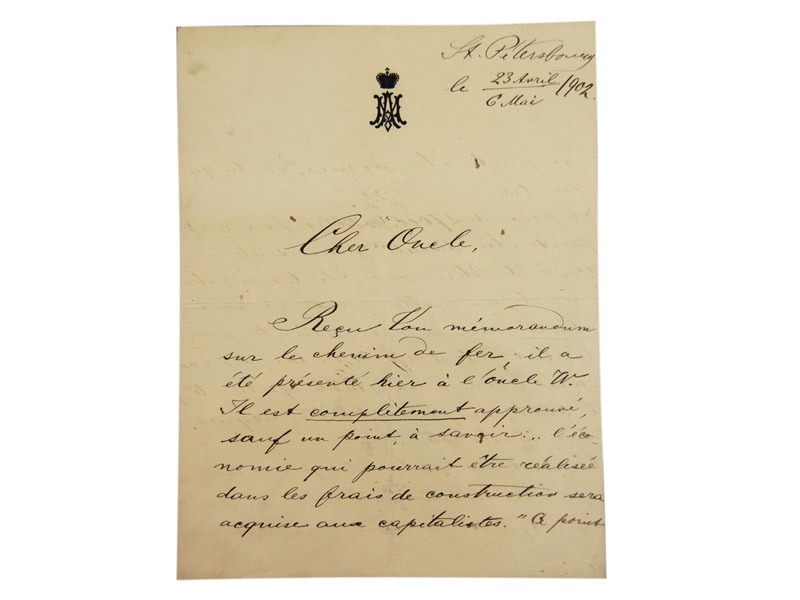 St. Pétersbourg
le 23 Avril / 6 Mai 1902.
Cher Oncle,
Reçu Ton mémorandum
sur le chemin de fer; il a
été présenté hier à l'Oncle W.
Il est complètement approuvé,
sauf un point, à savoir: „l'éco-
nomie qui pourrait être réalisée
dans les frais de construction sera
acquise aux capitalistes." Ce point